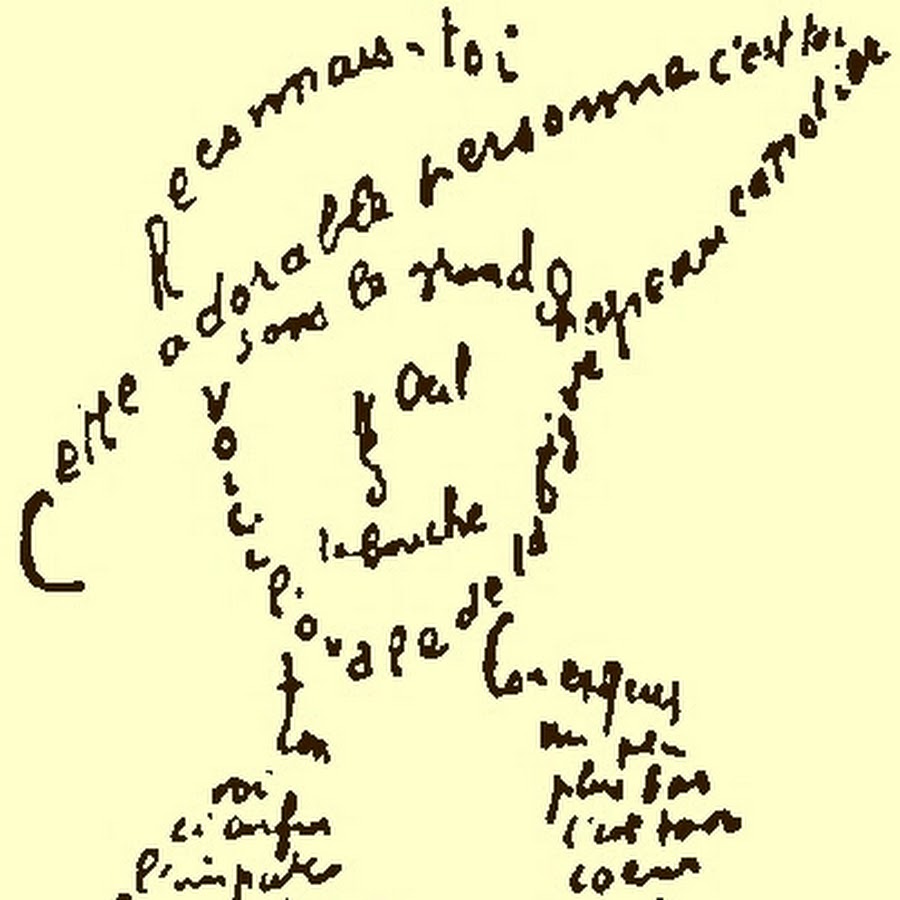 Reconnais-toi
Cette adorable personne c'est toi
sous le grand chapeau canotier
Œil
Nez
la bouche
Voici l'ovale de ta figure
Ton cou exquis
voici enfin
l'impar
un peu
plus bas
c'est ton
cœur